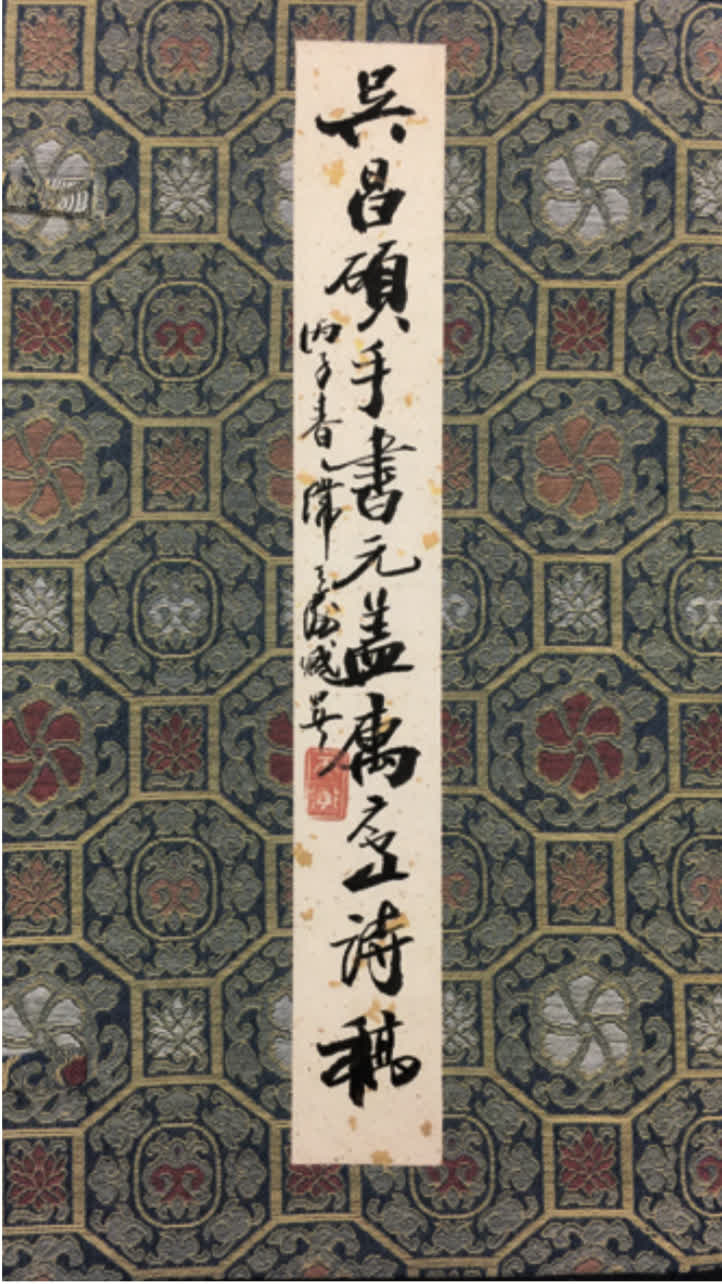 吳昌碩手書元盖寓廬詩稿
丙子春